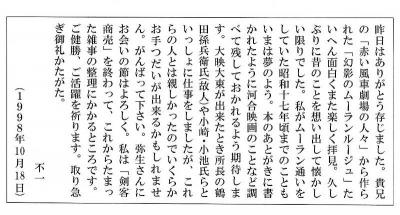 昨日はありがとう存じました。貴兄
の「赤い風車劇場の人々」から作ら
れた「幻影のムーランルージュ」た
いへん面白くまた楽しく拝見。久し
ぶりに昔のことを想い出して懐かし
い限りでした。私がムーラン通いを
していた昭和十七年頃までのことも
いまは夢のよう。本のあとがきに書
かれたように河合映画のことなど調
べて残しておかれるよう期待しま
す。大映大東が出来たとき所長の鶴
田孫兵衛氏（故人）や小崎・小池氏らと
いっしょに仕事をしましたが、これ
らの人とは親しかったのでいくらか
お手つだいが出来るかもしれませ
ん。がんばって下さい。弥生さんに
お会いの節はよろしく。私は「剣客
商売」を終わって、これからたまっ
た雑事の整理にかかるところです。
ご健勝、ご活躍を祈ります。取り急
ぎ御礼かたがた。
不一
（1998年10月18日）